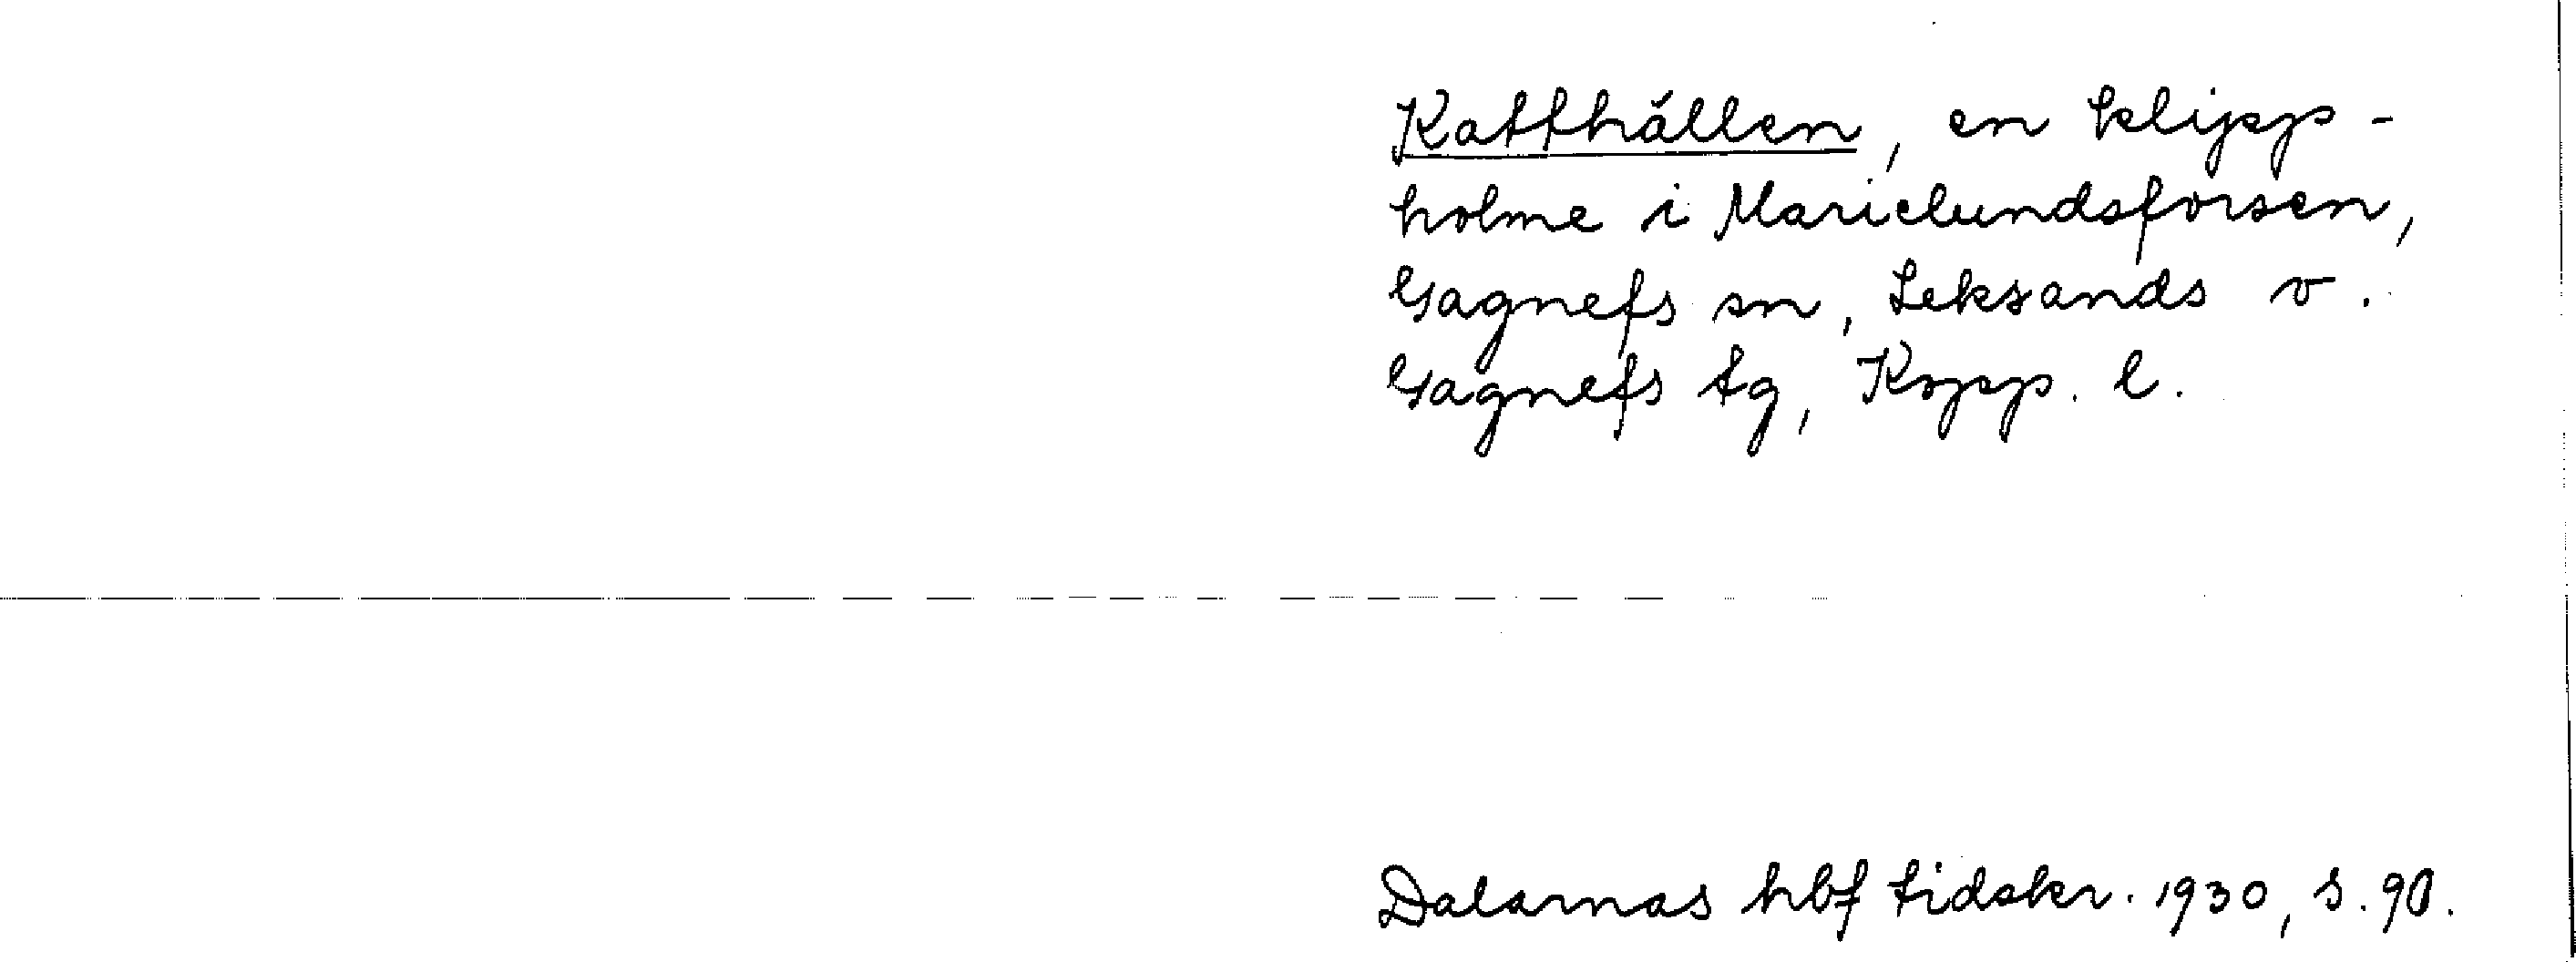 Katthällen, en klipp-
holme i Marielundsforsen,
Gagnefs sn, Leksands o.
Gagnefs tg, Kopp. l.
Dalarnas hbf tidskr. 1930, s. 90.